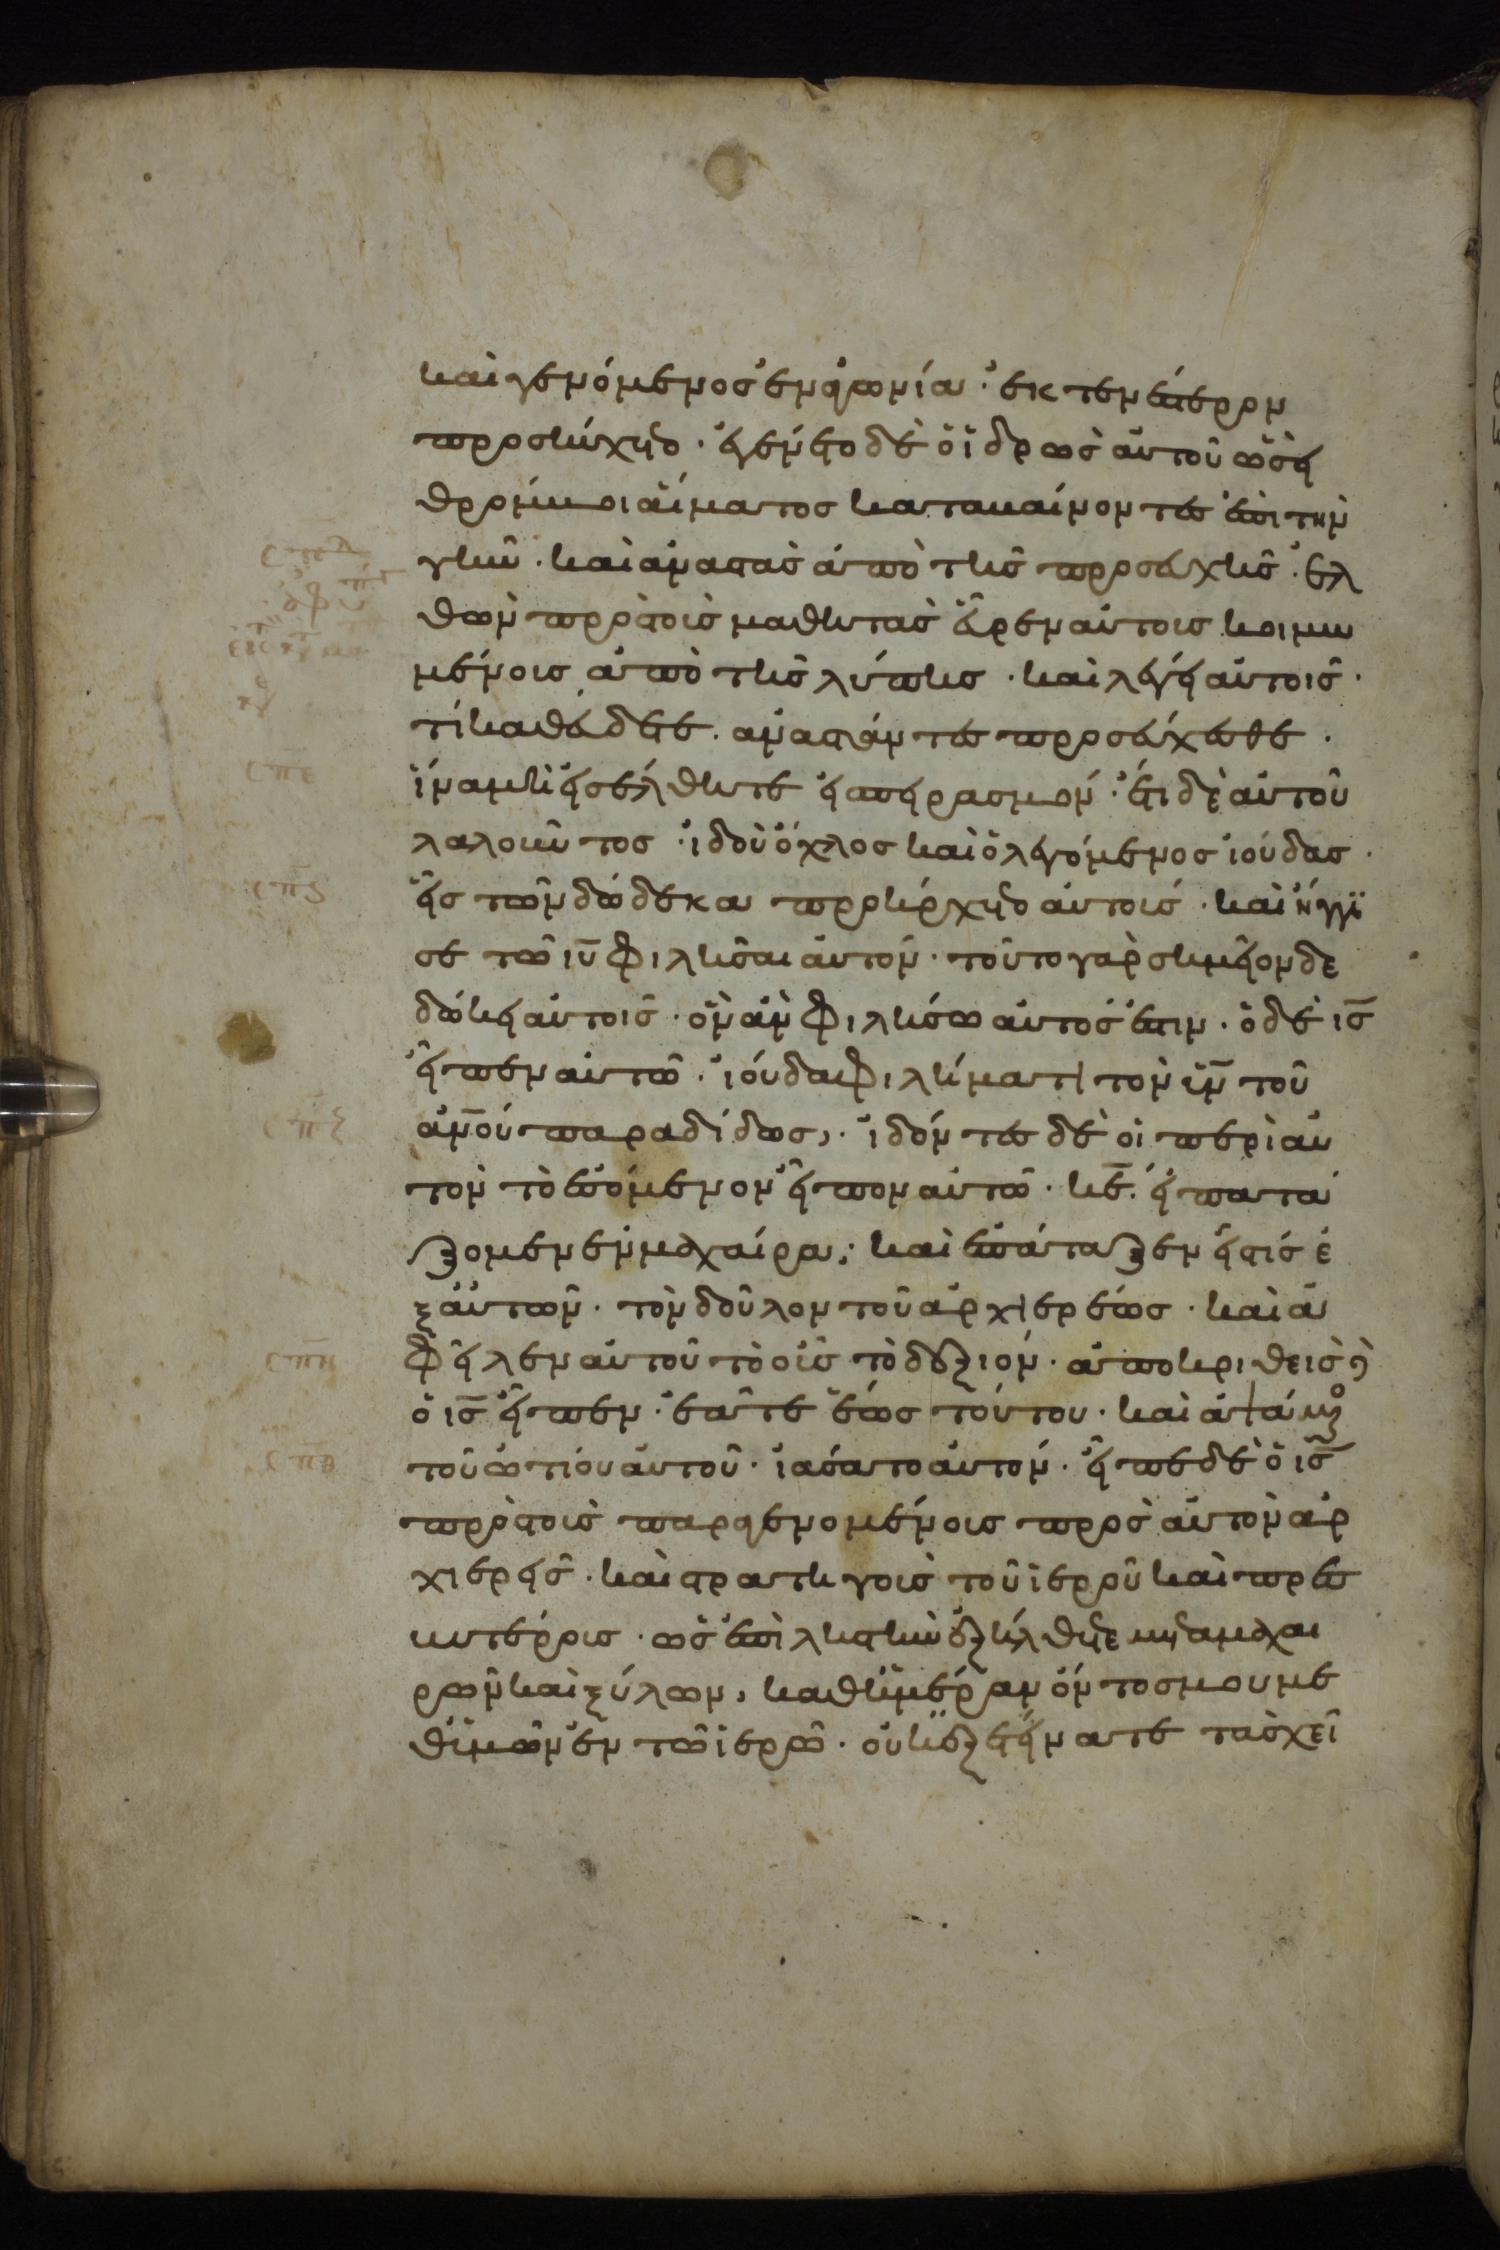 καὶ γενόμενος ἐν ἀγωνία· ἐκτενέστερον
προσηύχετο· ἐγένετο δὲ ὁ ἱδρωσ αὐτοῦ ὡσεὶ
θρόμβοι αἵματος καταβαίνοντες ἐπι τὴν
γῆν· καὶ ἀναστὰσ ἀπὸ τῆσ προσευχῆσ· ἐλ
θὼν πρὸς τοὺσ μαθητὰσ εὗρεν αὐτους κοιμω
μένους ἀπὸ τῆσ λύπης· καὶ λέγει αὐτοῖσ·
τί καθεύδετε. ἀναστάντες προσεύχεσθε·
ἵνα μὴ εἰσέλθητε εἰς πειρασμόν· ἔτι δὲ αὐτοῦ
λαλοῦντος· ἰδοὺ ὄχλος καὶ ὁ λεγόμενος ἰούδας·
εἷς τῶν δώδεκα προήρχετο αὐτούσ· καὶ ἤγγι
σε τῶ ιῦ φιλῆσαι αὐτόν· τοῦτο γὰρ σημεῖον δε
δώκει αὐτοῖσ· ὃν ἂν φιλήσω αὐτόσ ἐστιν· ὁ δὲ ισ
εἶπεν αὐτῶ· ἰούδα φιλήματι τὸν υν τοῦ
ανου παραδίδως,· ἰδόντες δὲ οἱ περὶ αὐ
τὸν τὸ ἐσόμενον εἶπον αὐτῶ· κε· εἰ πατά
ξομεν ἐν μαχαίρα,· καὶ ἐπάταξεν εἷς τίσ ἐ
ξ αὐτῶν· τὸν δοῦλον τοῦ ἀρχιερέως· καὶ ἀ
φεῖλεν αὐτοῦ τὸ οὖσ τὸ δεξιόν· ἀποκριθεισ δὲ
ὁ ισ εἶπεν· ἐᾶτε ἕως τούτου· καὶ ἁψάμενος
τοῦ ὠτίου αὐτοῦ· ἰάσατο αὐτόν· εἶπε δὲ ὁ ισ
πρὸς τοὺσ παραγενομένους πρὸσ αὐτὸν ἀρ
χιερεῖσ· καὶ στρατηγοὺσ τοῦ ἱεροῦ καὶ πρεσ
βυτέρους· ὡσ ἐπὶ ληστὴν ἐξήλθετε μετὰ μαχαι
ρῶν καὶ ξύλων, καθημέραν ὄντος μου με
θ ὑμῶν ἐν τῶ ἱερῶ· οὐκ ἐξετείνατε τὰσ χεῖ
σπε
σπς
σπζ
σπη
σπθ